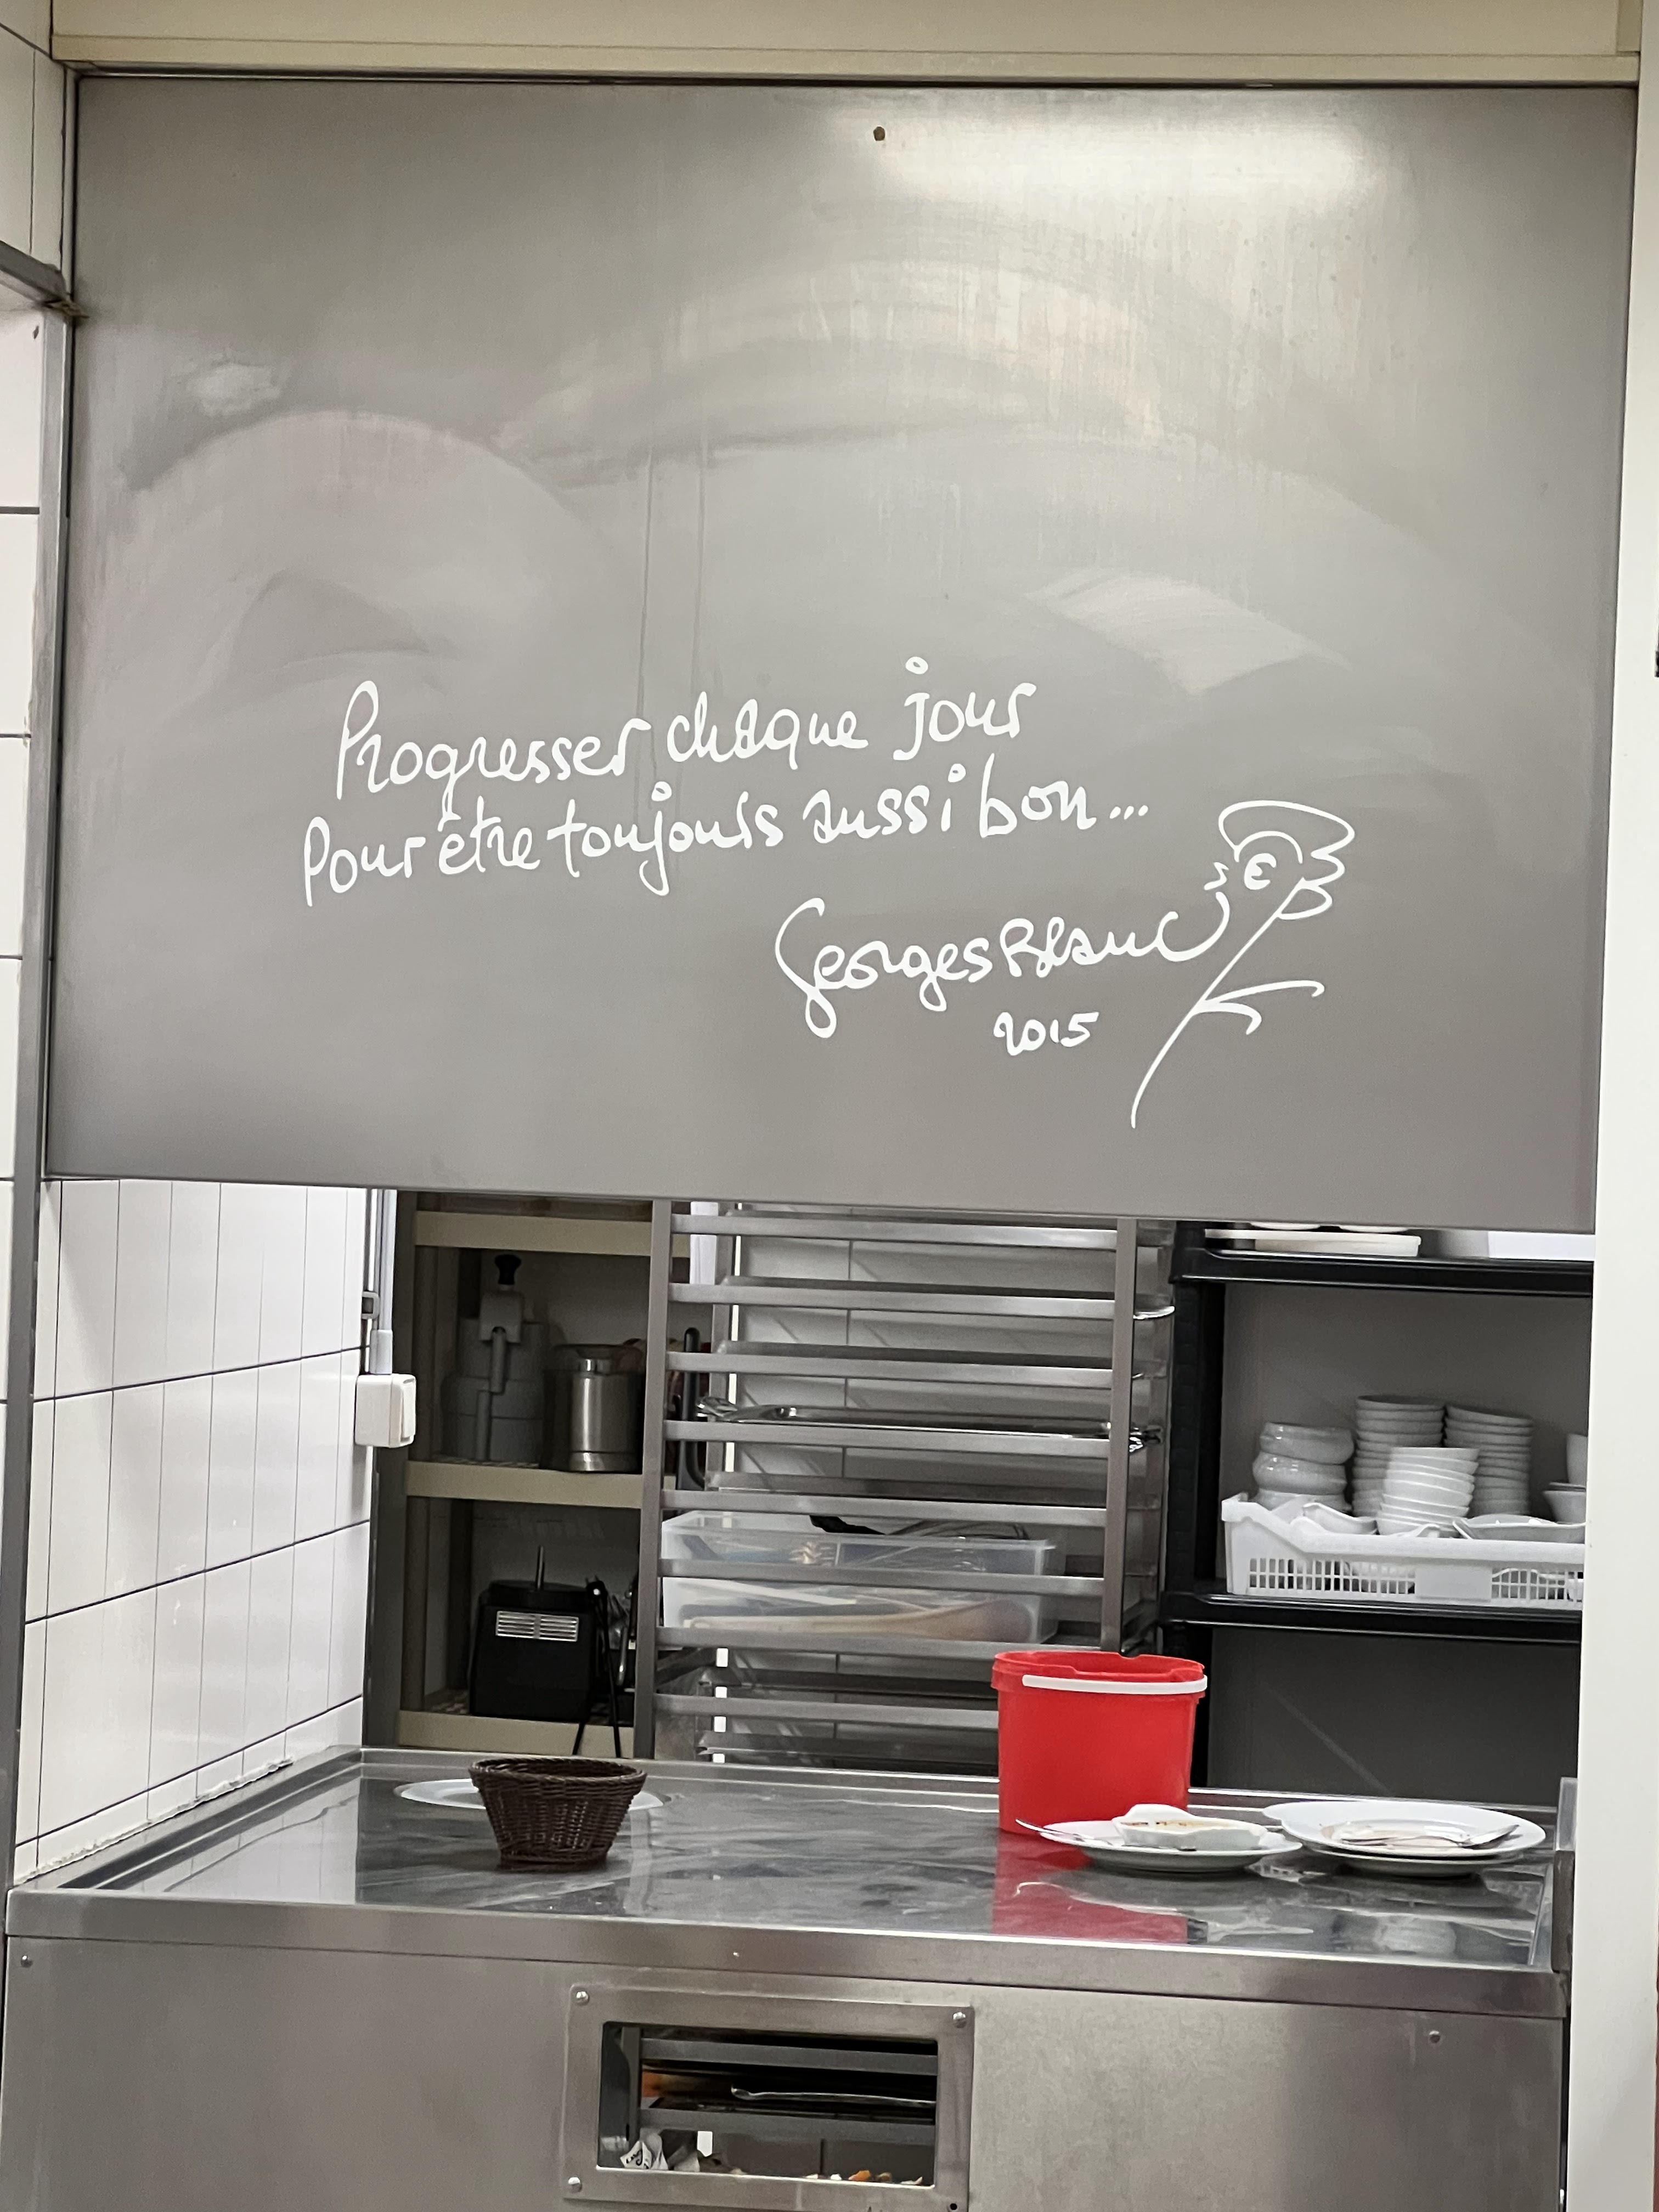 Progresser chaque jour
Pour être toujours aussi bon...
Georges Blanc
2015